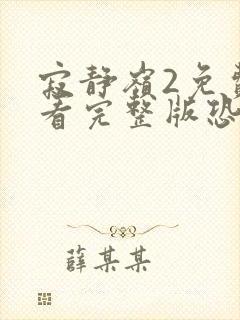 寂静嶺2免費
看完整版恐
薛某某